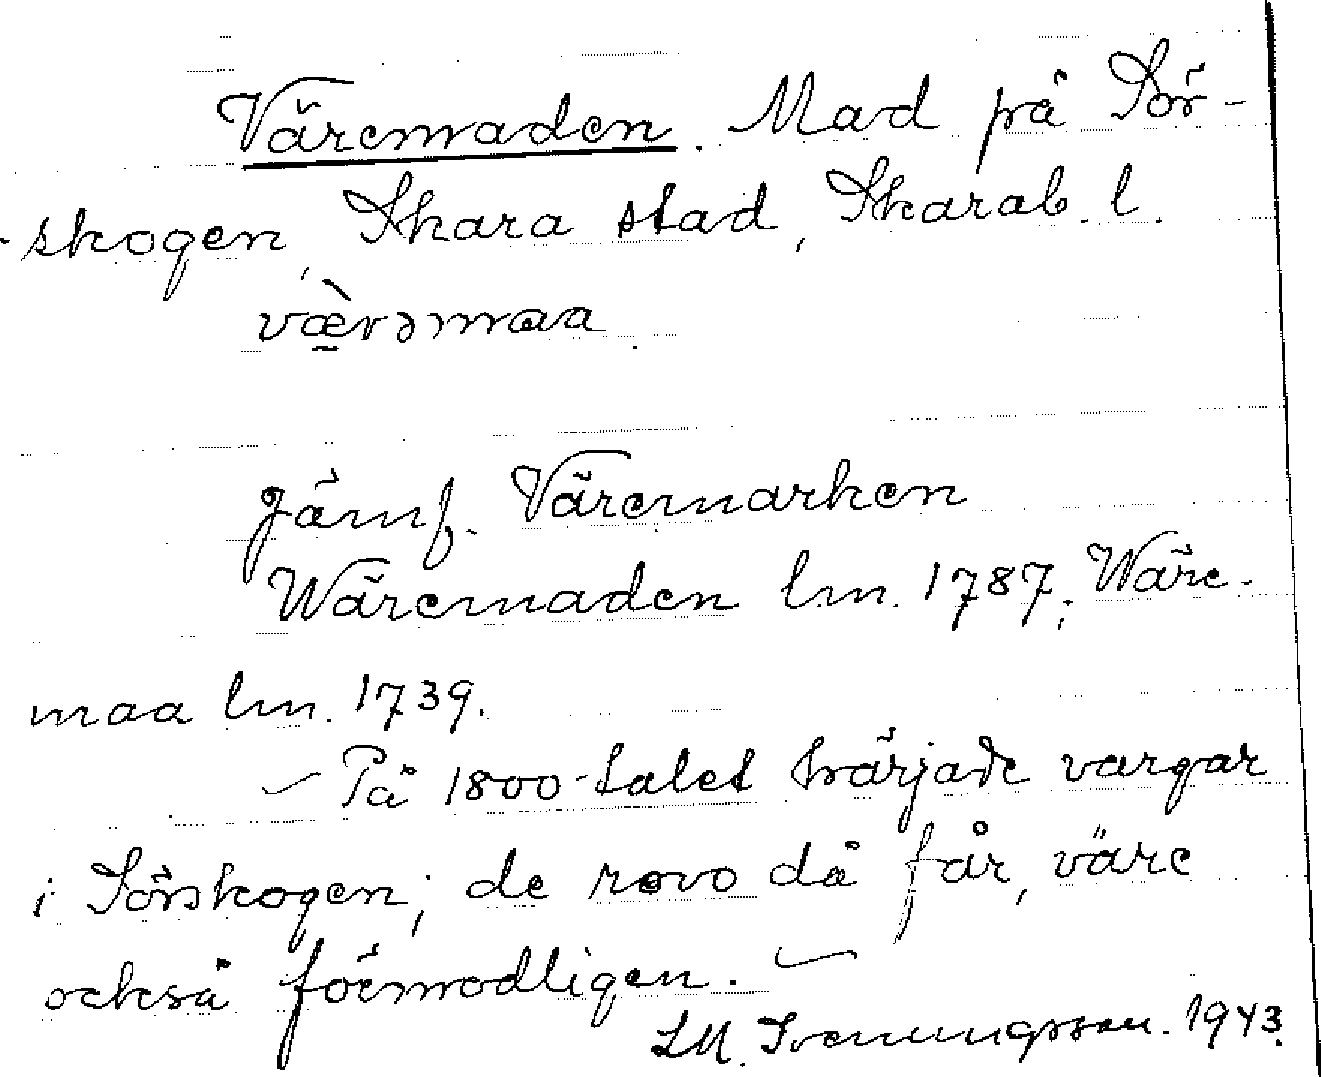 Väremaden. Mad på Sör-
skogen, Skara stad, Skarab. l.
væ̀rəmaa
Jämf. Väremarken
Wäremaden lm. 1787; Wäre-
maa lm. 1739.
– På 1800-talet härjade vargar
i Sörskogen; de rovo då får, väre
också förmodligen. –
LM. Svenungsson. 1943.